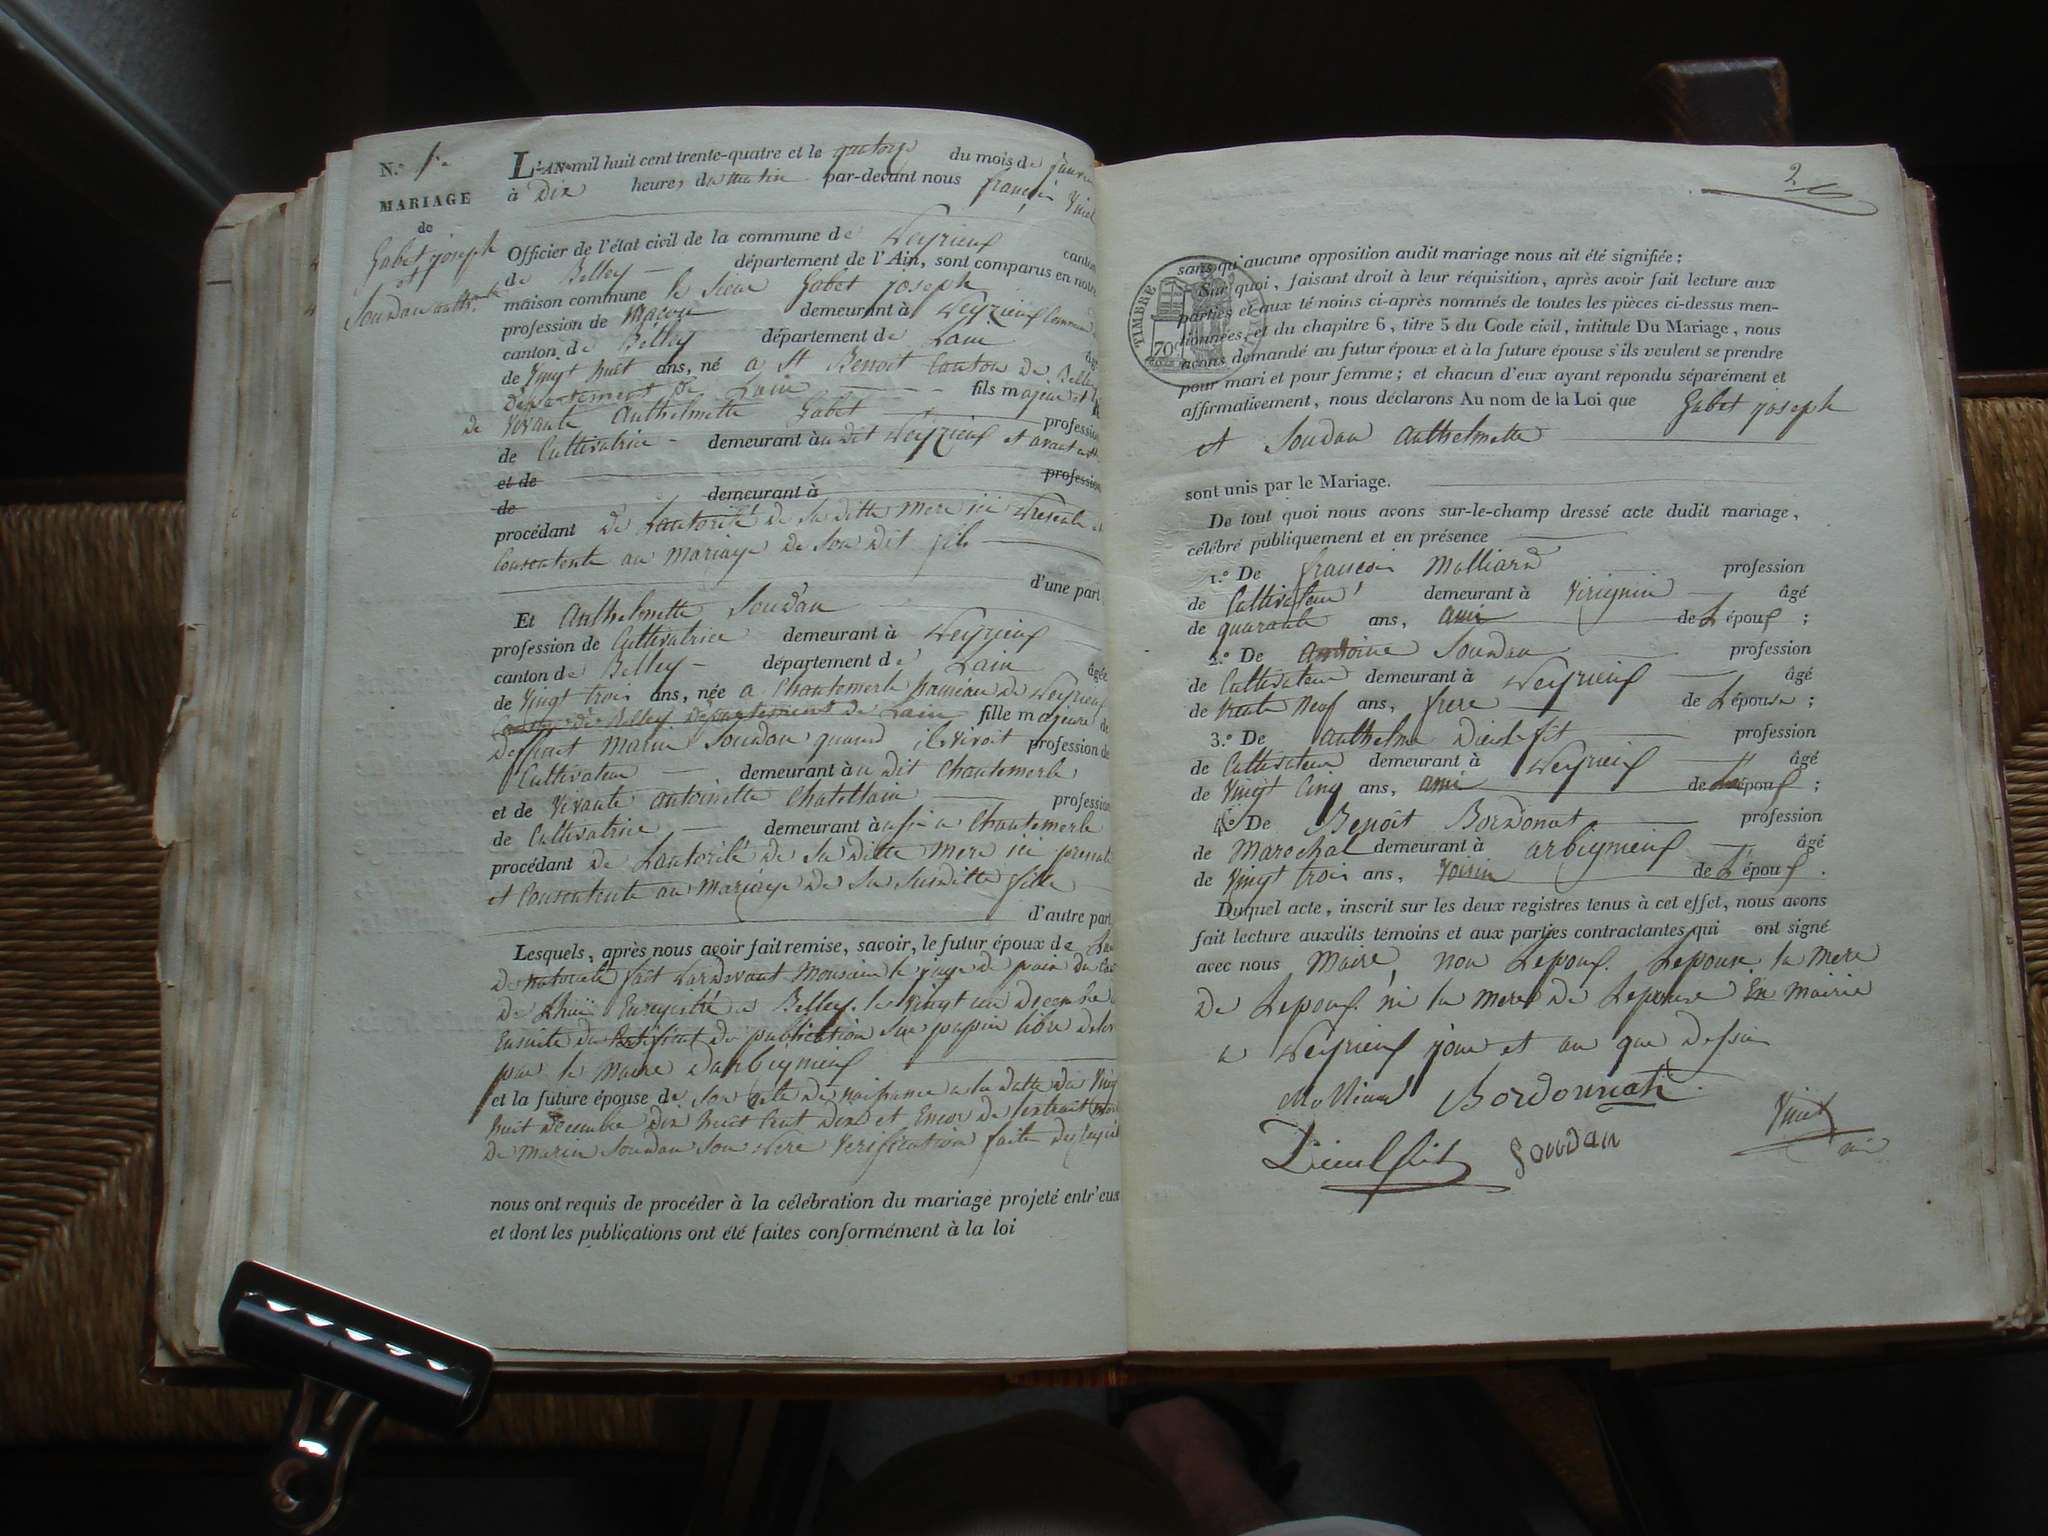 N.º 1.er
MARIAGE
de
Gabet joseph
et
Soudan anthelmette
L'AN mil huit cent trente-quatre et le quatorze du mois de janvier
à Dix heures du matin par-devant nous françois Vuiet
Officier de l'état civil de la commune de Peyrieux canton
de Belley département de l'Ain, sont comparus en notre
maison commune le sieur Gabet joseph
profession de Maçon demeurant à Peyrieux Commune
canton de Belley département de Lain âgé
de vingt huit ans, né a St Benoit Canton de Belley
département de Lain fils majeur et
de vivante Anthelmette Gabet profession
de Cultivatrice demeurant à u dit Peyrieux et avant
et de profession
de demeurant à
procédant de Lautorité de sa ditte mere ici presente et
consentente au mariage de son dit fils
d'une part.
Et Anthelmette Soudan
profession de Cultivatrice demeurant à Peyrieux
canton de Belley département de Lain âgée
de vingt trois ans, née a Chantemerle hameau de Peyrieux
Canton de Belley département de Lain fille majeure de
deffunt Marin Soudan quand il vivoit profession de
Cultivateur demeurant à u dit Chantemerle
et de vivante antoinette Chatellain profession
de Cultivatrice demeurant à ussi a Chantemerle
procédant de Lautorité de sa ditte mere ici presente
et consentente au mariage de sa susditte fille
d'autre part
Lesquels, après nous avoir fait remise, savoir, le futur époux de
de notorieté fait pardevant Monsieur le juge de paix du
de Enregistré a Belley le vingt un decembre
Ensuite du Certificat de publication sur papier libre
par le maire darbignieux
et la future épouse de son acte de naissance a la datte du vingt
huit decembre dix huit cent dix et encor de lextrait
de marin soudan son pere verification faite
nous ont requis de procéder à la célébration du mariage projeté entr'eux
et dont les publications ont été faites conformément à la loi
2
TIMBRE
70
sans qu'aucune opposition audit mariage nous ait été signifiée ;
Sur quoi, faisant droit à leur réquisition, après avoir fait lecture aux
parties et aux té noins ci-après nommés de toutes les pièces ci-dessus men-
tionnées, et du chapitre 6, titre 5 du Code civil, intitule Du Mariage, nous
avons demandé au futur époux et à la future épouse s'ils veulent se prendre
pour mari et pour femme ; et chacun d'eux ayant repondu séparément et
affirmativement, nous déclarons Au nom de la Loi que Gabet joseph
et Soudan Anthelmette
sont unis par le Mariage.
De tout quoi nous avons sur-le-champ dressé acte dudit mariage,
célébré publiquement et en présence
1.º De françois Molliard profession
de Cultivateur demeurant à Virignin âgé
de quarante ans, ami de Lépoux ;
2.º De Antoine Soudan profession
de Cultivateur demeurant à Peyrieux âgé
de trente neuf ans, frere de Lépouse ;
3.º De Anthelme Dieulefit profession
de Cultivateur demeurant à Peyrieux âgé
de vingt cinq ans, ami de Lépoux ;
4.º De Benoît Bordonat profession
de Marechal demeurant à arbignieux âgé
de vingt trois ans, voisin de Lépoux .
Duquel acte, inscrit sur les deux registres tenus à cet effet, nous avons
fait lecture auxdits témoins et aux parties contractantes qui ont signé
avec nous Maire, non Lepoux. Lepouse la mere
de Lepoux ni la mere de Lepouse En mairie
a Peyrieux jour et an que dessus
Molliard Bordonnat
Dieulefit Soudan Vuiet